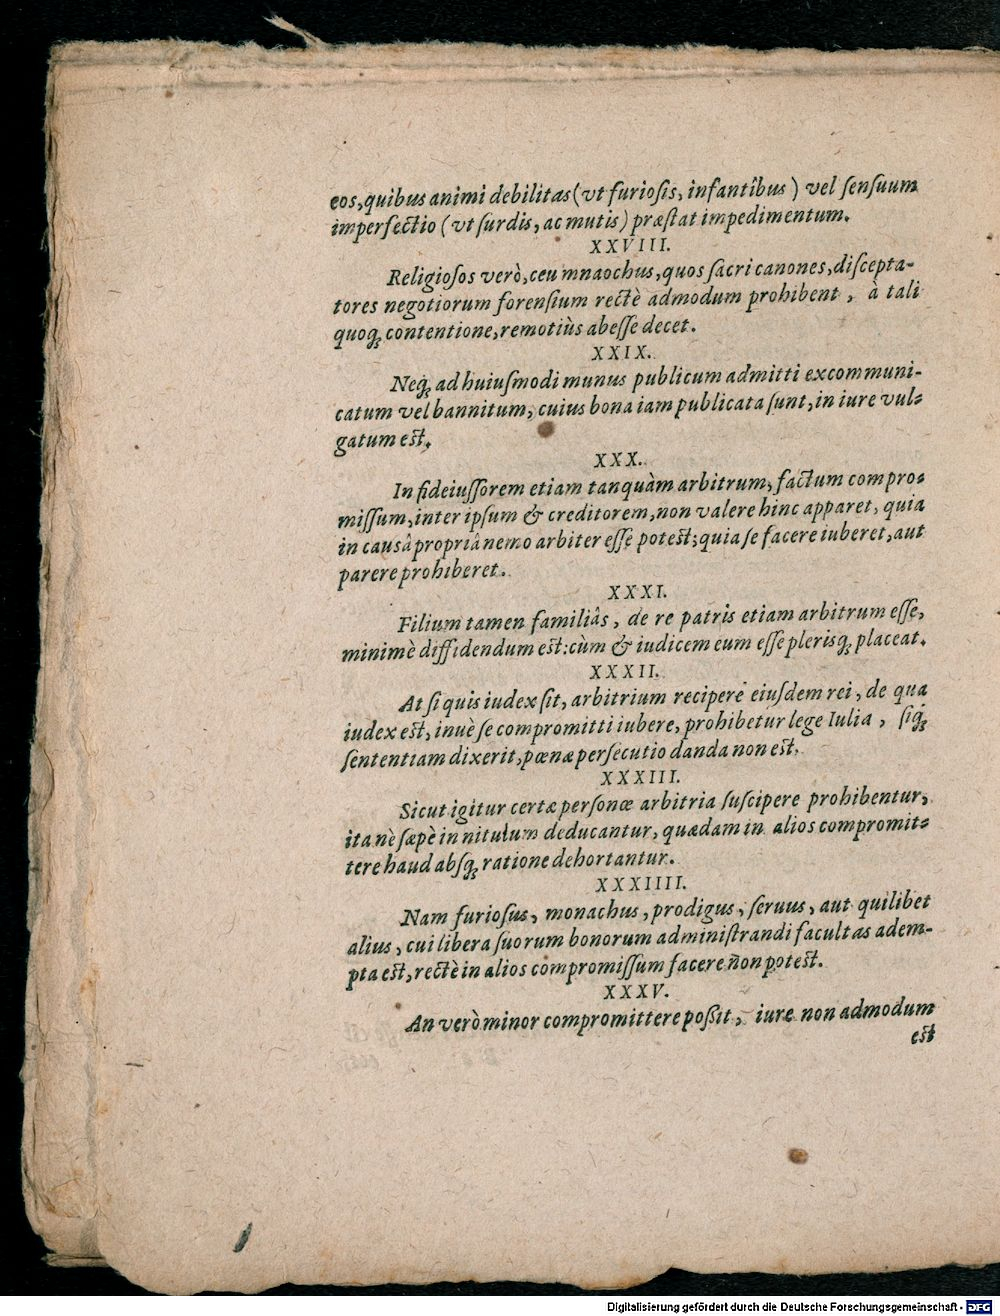 eos, quibus animi debilitas (vt furiosis, infantibus) vel sensuum
imperfectio (vt surdis, ac mutis) præstat impedimentum.
XXVIII.
Religiosos verò, ceu mnaochus, quos sacri canones, discepta-
tores negotiorum forensium rectè admodum prohibent, à tali
quoq; contentione, remotiùs abesse decet.
XXIX.
Neq; ad huiusmodi munus publicum admitti excommuni-
catum vel bannitum, cuius bona iam publicata sunt, in iure vul-
gatum est.
XXX.
In fideiussorem etiam tanquàm arbitrum, factum compro-
missum, inter ipsum & creditorem, non valere hinc apparet, quia
in causâ propriâ nemo arbiter esse potest; quia se facere iuberet, aut
parere prohiberet.
XXXI.
Filium tamen familiâs, de re patris etiam arbitrum esse,
minimè diffidendum est: cùm & iudicem eum esse plerisq; placeat.
XXXII.
At si quis iudex sit, arbitrium recipere eiusdem rei, de qua
iudex est, inuè se compromitti iubere, prohibetur lege Iulia, siq;
sententiam dixerit, pœnæ persecutio danda non est.
XXXIII.
Sicut igitur certæ personæ arbitria suscipere prohibentur,
ita nè sæpè in nitulum deducantur, quædam in alios compromit-
tere haud absq; ratione dehortantur.
XXXIIII.
Nam furiosus, monachus, prodigus, seruus, aut quilibet
alius, cui libera suorum bonorum administrandi facultas adem-
pta est, rectè in alios compromissum facere non potest.
XXXV.
An verò minor compromittere possit, iure non admodum
est
Digitalisierung gefördert durch die Deutsche Forschungsgemeinschaft - DFG